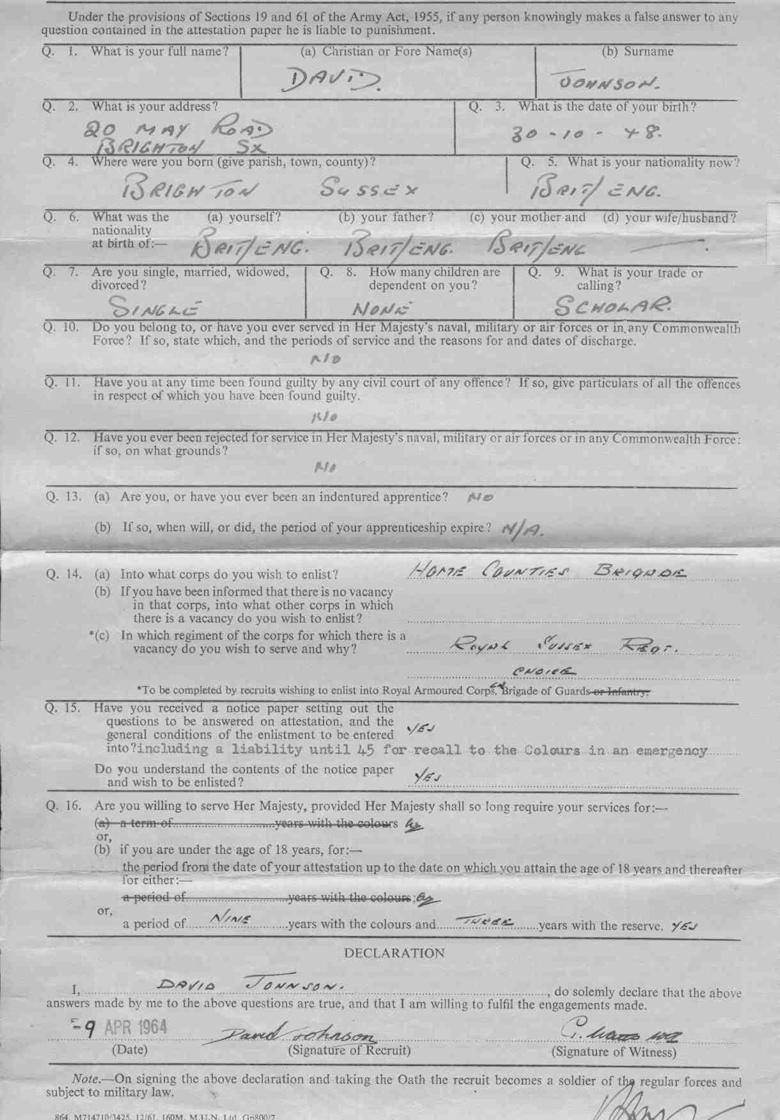 Under the provisions of Sections 19 and 61 of the Army Act, 1955, if any person knowingly makes a false answer to any
question contained in the attestation paper he is liable to punishment.
Q. 1. What is your full name? (a) Christian or Fore Name(s) (b) Surname
DAVID. JOHNSON.
Q. 2. What is your address? Q. 3. What is the date of your birth?
20 MAY ROAD
30-10-48.
BRIGHTON SX
Q. 4. Where were you born (give parish, town, county)? Q. 5. What is your nationality now?
BRIGHTON SUSSEX BRIT/ENG.
Q. 6. What was the (a) yourself? (b) your father? (c) your mother and (d) your wife/husband?
nationality
at birth of:— BRIT/ENG. BRIT/ENG. BRIT/ENG —.
Q. 7. Are you single, married, widowed, Q. 8. How many children are Q. 9. What is your trade or
divorced? dependent on you? calling?
SINGLE NONE SCHOLAR.
Q. 10. Do you belong to, or have you ever served in Her Majesty's naval, military or air forces or in any Commonwealth
Force? If so, state which, and the periods of service and the reasons for and dates of discharge.
NO
Q. 11. Have you at any time been found guilty by any civil court of any offence? If so, give particulars of all the offences
in respect of which you have been found guilty.
NO
Q. 12. Have you ever been rejected for service in Her Majesty's naval, military or air forces or in any Commonwealth Force:
if so, on what grounds?
NO
Q. 13. (a) Are you, or have you ever been an indentured apprentice? NO
(b) If so, when will, or did, the period of your apprenticeship expire? N/A.
Q. 14. (a) Into what corps do you wish to enlist? HOME COUNTIES BRIGADE
(b) If you have been informed that there is no vacancy
in that corps, into what other corps in which
there is a vacancy do you wish to enlist?
*(c) In which regiment of the corps for which there is a
vacancy do you wish to serve and why? ROYAL SUSSEX REGT.
CHOICE
*To be completed by recruits wishing to enlist into Royal Armoured Corps, Brigade of Guards or Infantry.
Q. 15. Have you received a notice paper setting out the
questions to be answered on attestation, and the
general conditions of the enlistment to be entered YES
into? including a liability until 45 for recall to the Colours in an emergency
Do you understand the contents of the notice paper
and wish to be enlisted? YES
Q. 16. Are you willing to serve Her Majesty, provided Her Majesty shall so long require your services for:—
(a) a term of years with the colours
or,
(b) if you are under the age of 18 years, for:—
the period from the date of your attestation up to the date on which you attain the age of 18 years and thereafter
for either:—
a period of years with the colours;
or,
a period of NINE years with the colours and THREE years with the reserve. YES
DECLARATION
I, DAVID JOHNSON. , do solemnly declare that the above
answers made by me to the above questions are true, and that I am willing to fulfil the engagements made.
-9 APR 1964 David Johnson
(Date) (Signature of Recruit) (Signature of Witness)
Note.—On signing the above declaration and taking the Oath the recruit becomes a soldier of the regular forces and
subject to military law.
864 M714710/3425 12/61 160M M.U.N. Ltd. Gp800/7